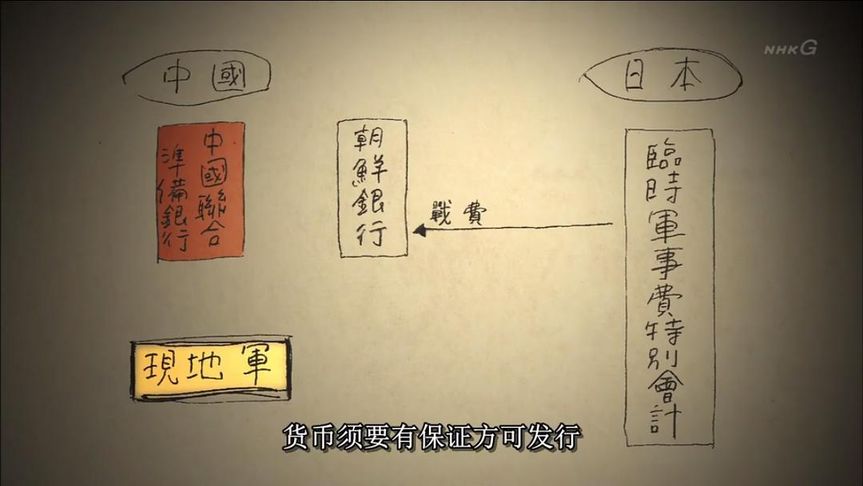 NHK G
中國
日本
中國聯合
準備銀行
朝鮮銀行
戰費
臨時軍事費特別會計
現地軍
货币须要有保证方可发行